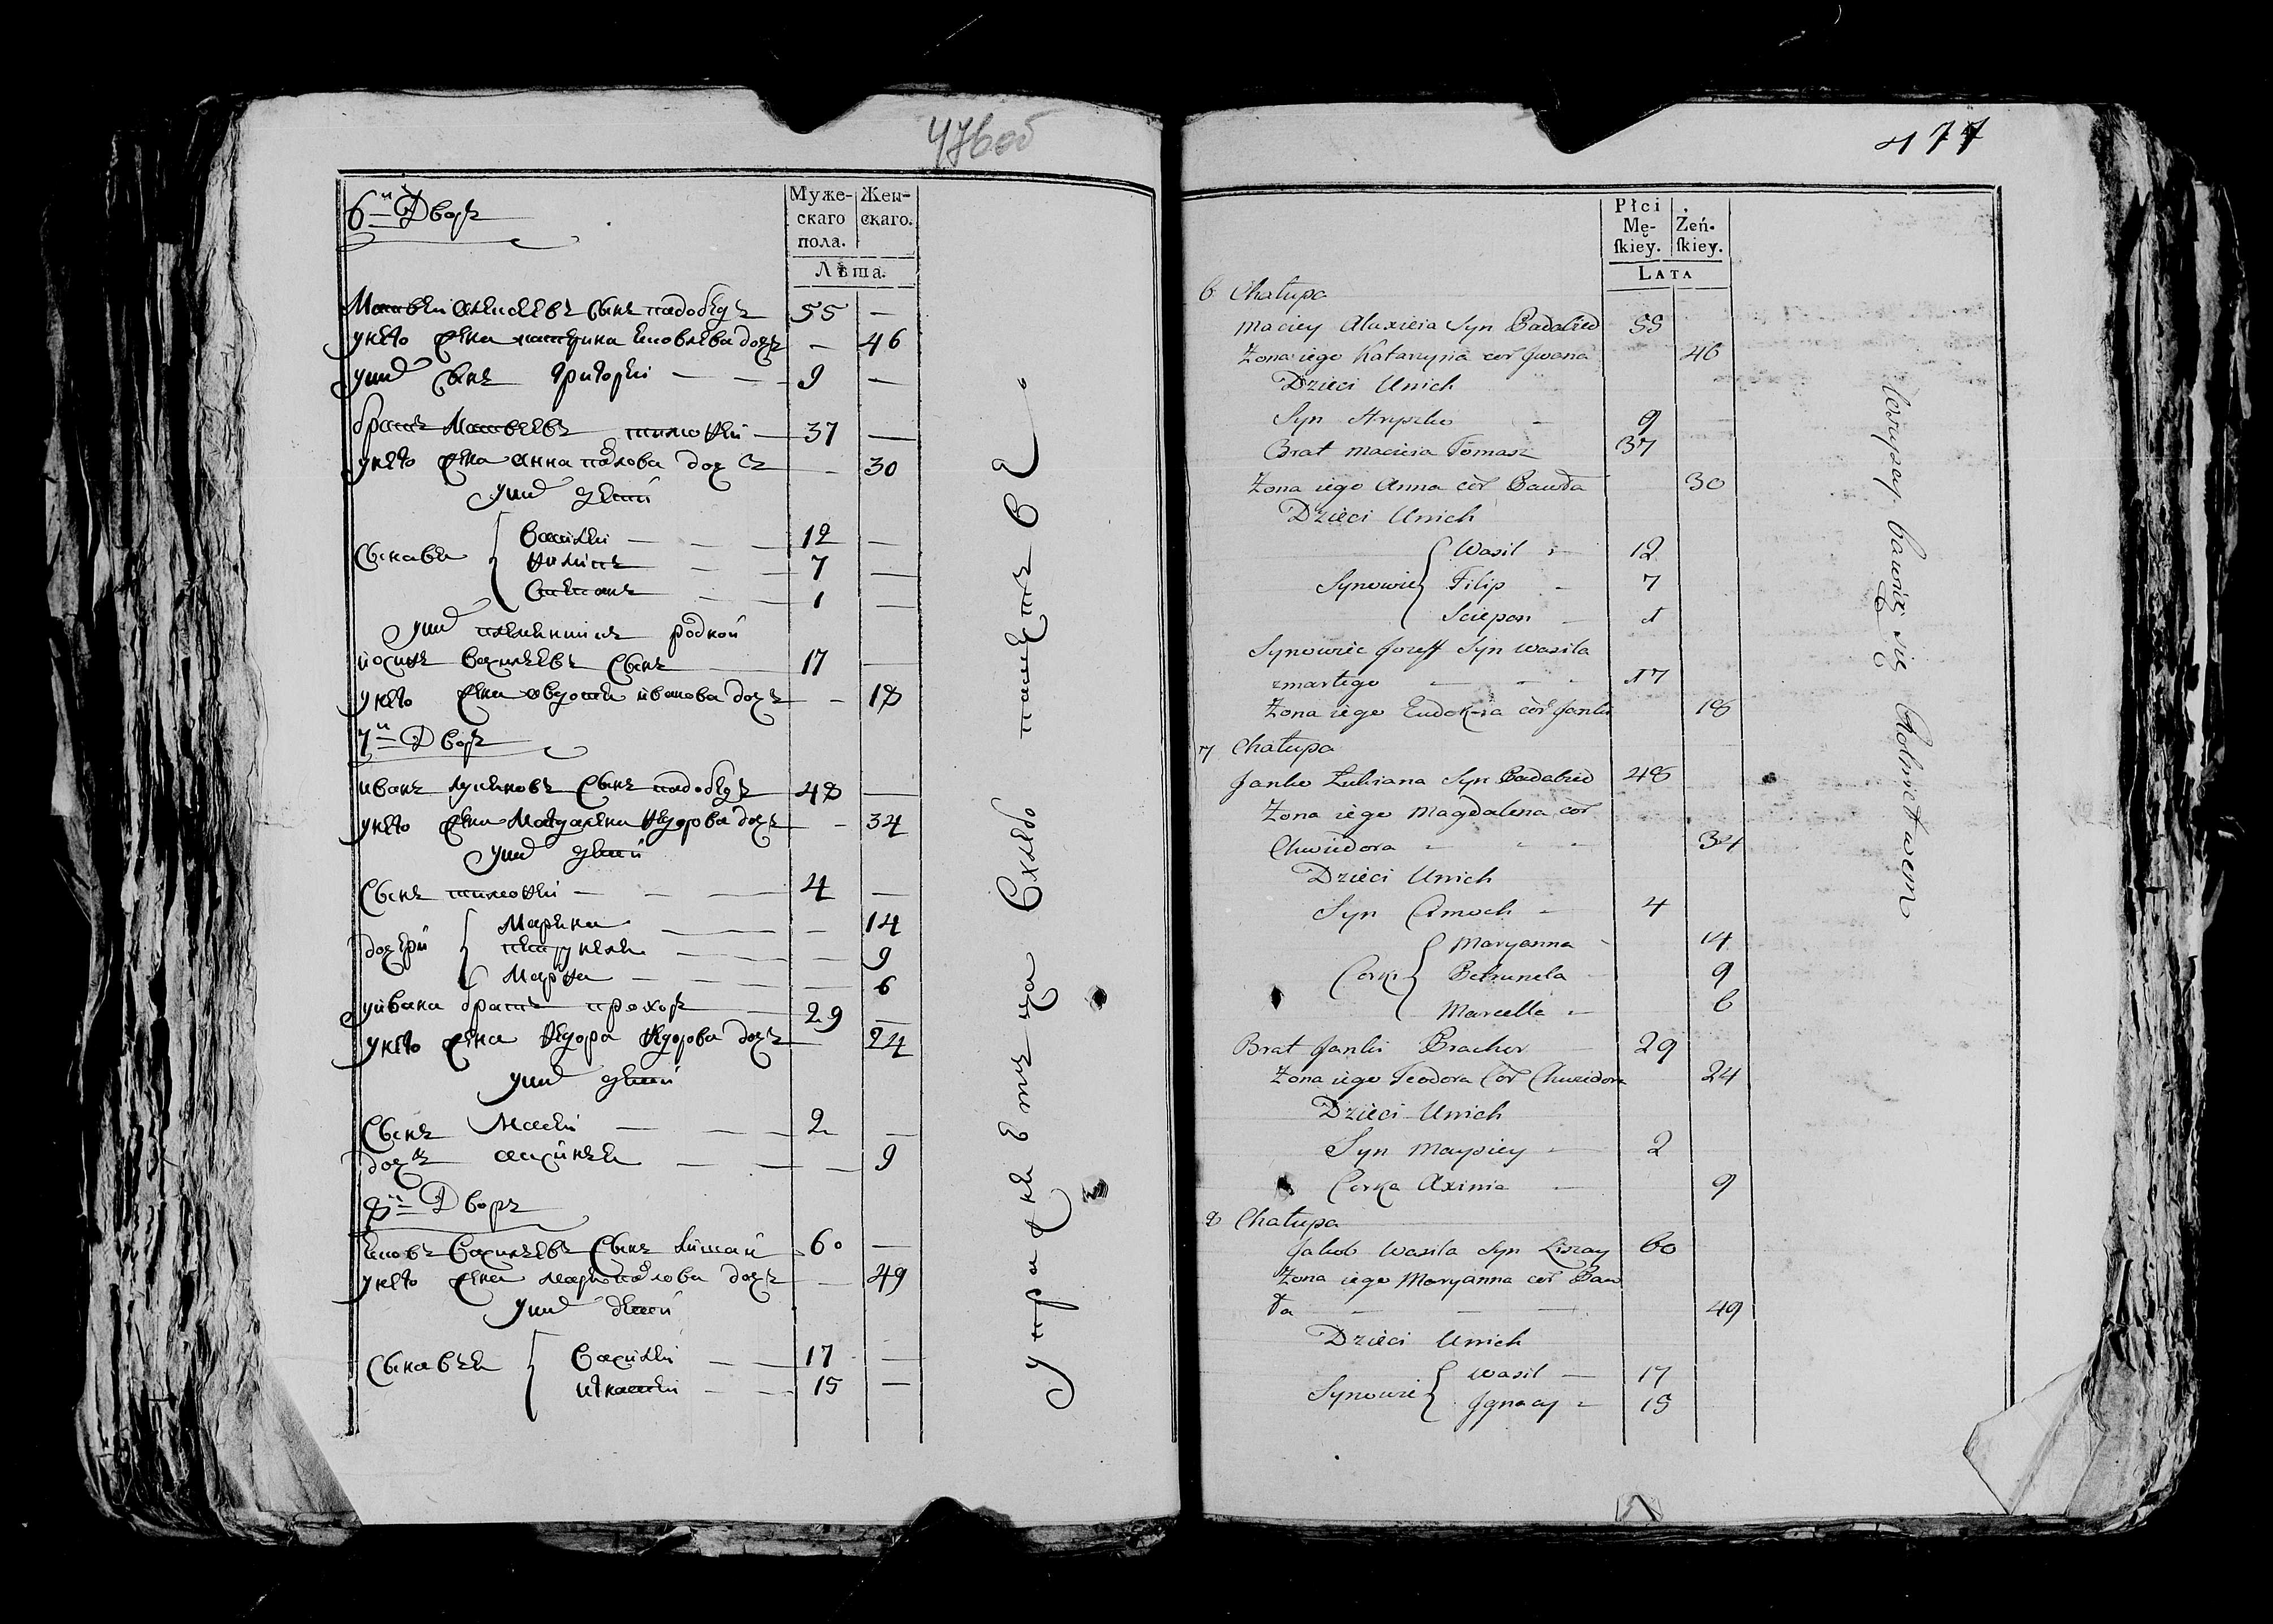 476об
6й Дворъ
Муже-
скаго
пола.
Жен-
скаго.
Лѣта.
Матвеи Алексеевъ сынъ падобедъ 55 —
унего жена катерина дочъ — 46
унихъ сынъ григореи — — 9 —
братъ Матвеевъ тимофеи — 37 —
унего жена анна павлова дочъ — 30
унихъ дети
Сынавья
василеи — — — 12 —
филипъ — — 7 —
Степанъ — — 1 —
унихъ племянникъ родной
иосифъ василевъ сынъ 17 —
унего жена авдотья иванова дочъ — 18
7й Дворъ
иванъ лукъяновъ сынъ падобедъ 48 —
унего жена Магдалена федорова дочъ — 34
унихъ дети
Сынъ тимофеи — — — 4 —
дочери
Марьяна — — 14
петрунеля — — 9
Марфа — — — 6
уивана братъ прохоръ — 29 —
унего жена федора федорова дочъ — 24
унихъ дети
Сынъ — — — 2 —
дочъ аксинья — — — 9
8й Дворъ
яковъ василевъ сынъ лишай 60 —
унего жена павлова дочъ — 49
унихъ дети
Сынавья
василеи — — 17 —
игнатеи — — 15 —
упражняетца Схлебо паметъ ВЕ
477
Płci
Mę-
ſkiey.
Żeń-
ſkiey.
LATA
6 Chałupa
Maciey Alaxieia Syn Badabied 55
Zona iego Katarzyna cor Jwana 46
Dzieci Unich
Syn Hryszko — 9
Brat Macieia Tomasz 37
Zona iego Anna cor Pawła 30
Dzieci Unich
Synowie
Wasil — 12
Filip — 7
Sciepon — 1
Synowiec Jozeff Syn Wasila
zmarłego — — — 17
Zona iego Eudokia cor Janki 18
7 Chałupa
Janko Łukiana Syn Badabied 48
Zona iego Magdalena cor
Chwiedora — — — 34
Dzieci Unich
Syn Cimoch — 4
Corki
Maryanna — 14
Petrunela — 9
Marcella — 6
Brat Janki Prachor — 29
Zona iego Teodora Cor Chwiedora 24
Dzieci Unich
Syn Maysiey — 2
Corka Axinia — 9
8 Chałupa
Jakub Wasila Syn Liszay 60
Zona iego Maryanna cor Paw
ła — — — 49
Dzieci Unich
Synowie
Wasil — 17
Jgnacy — 15
bawią się Rolnictwem